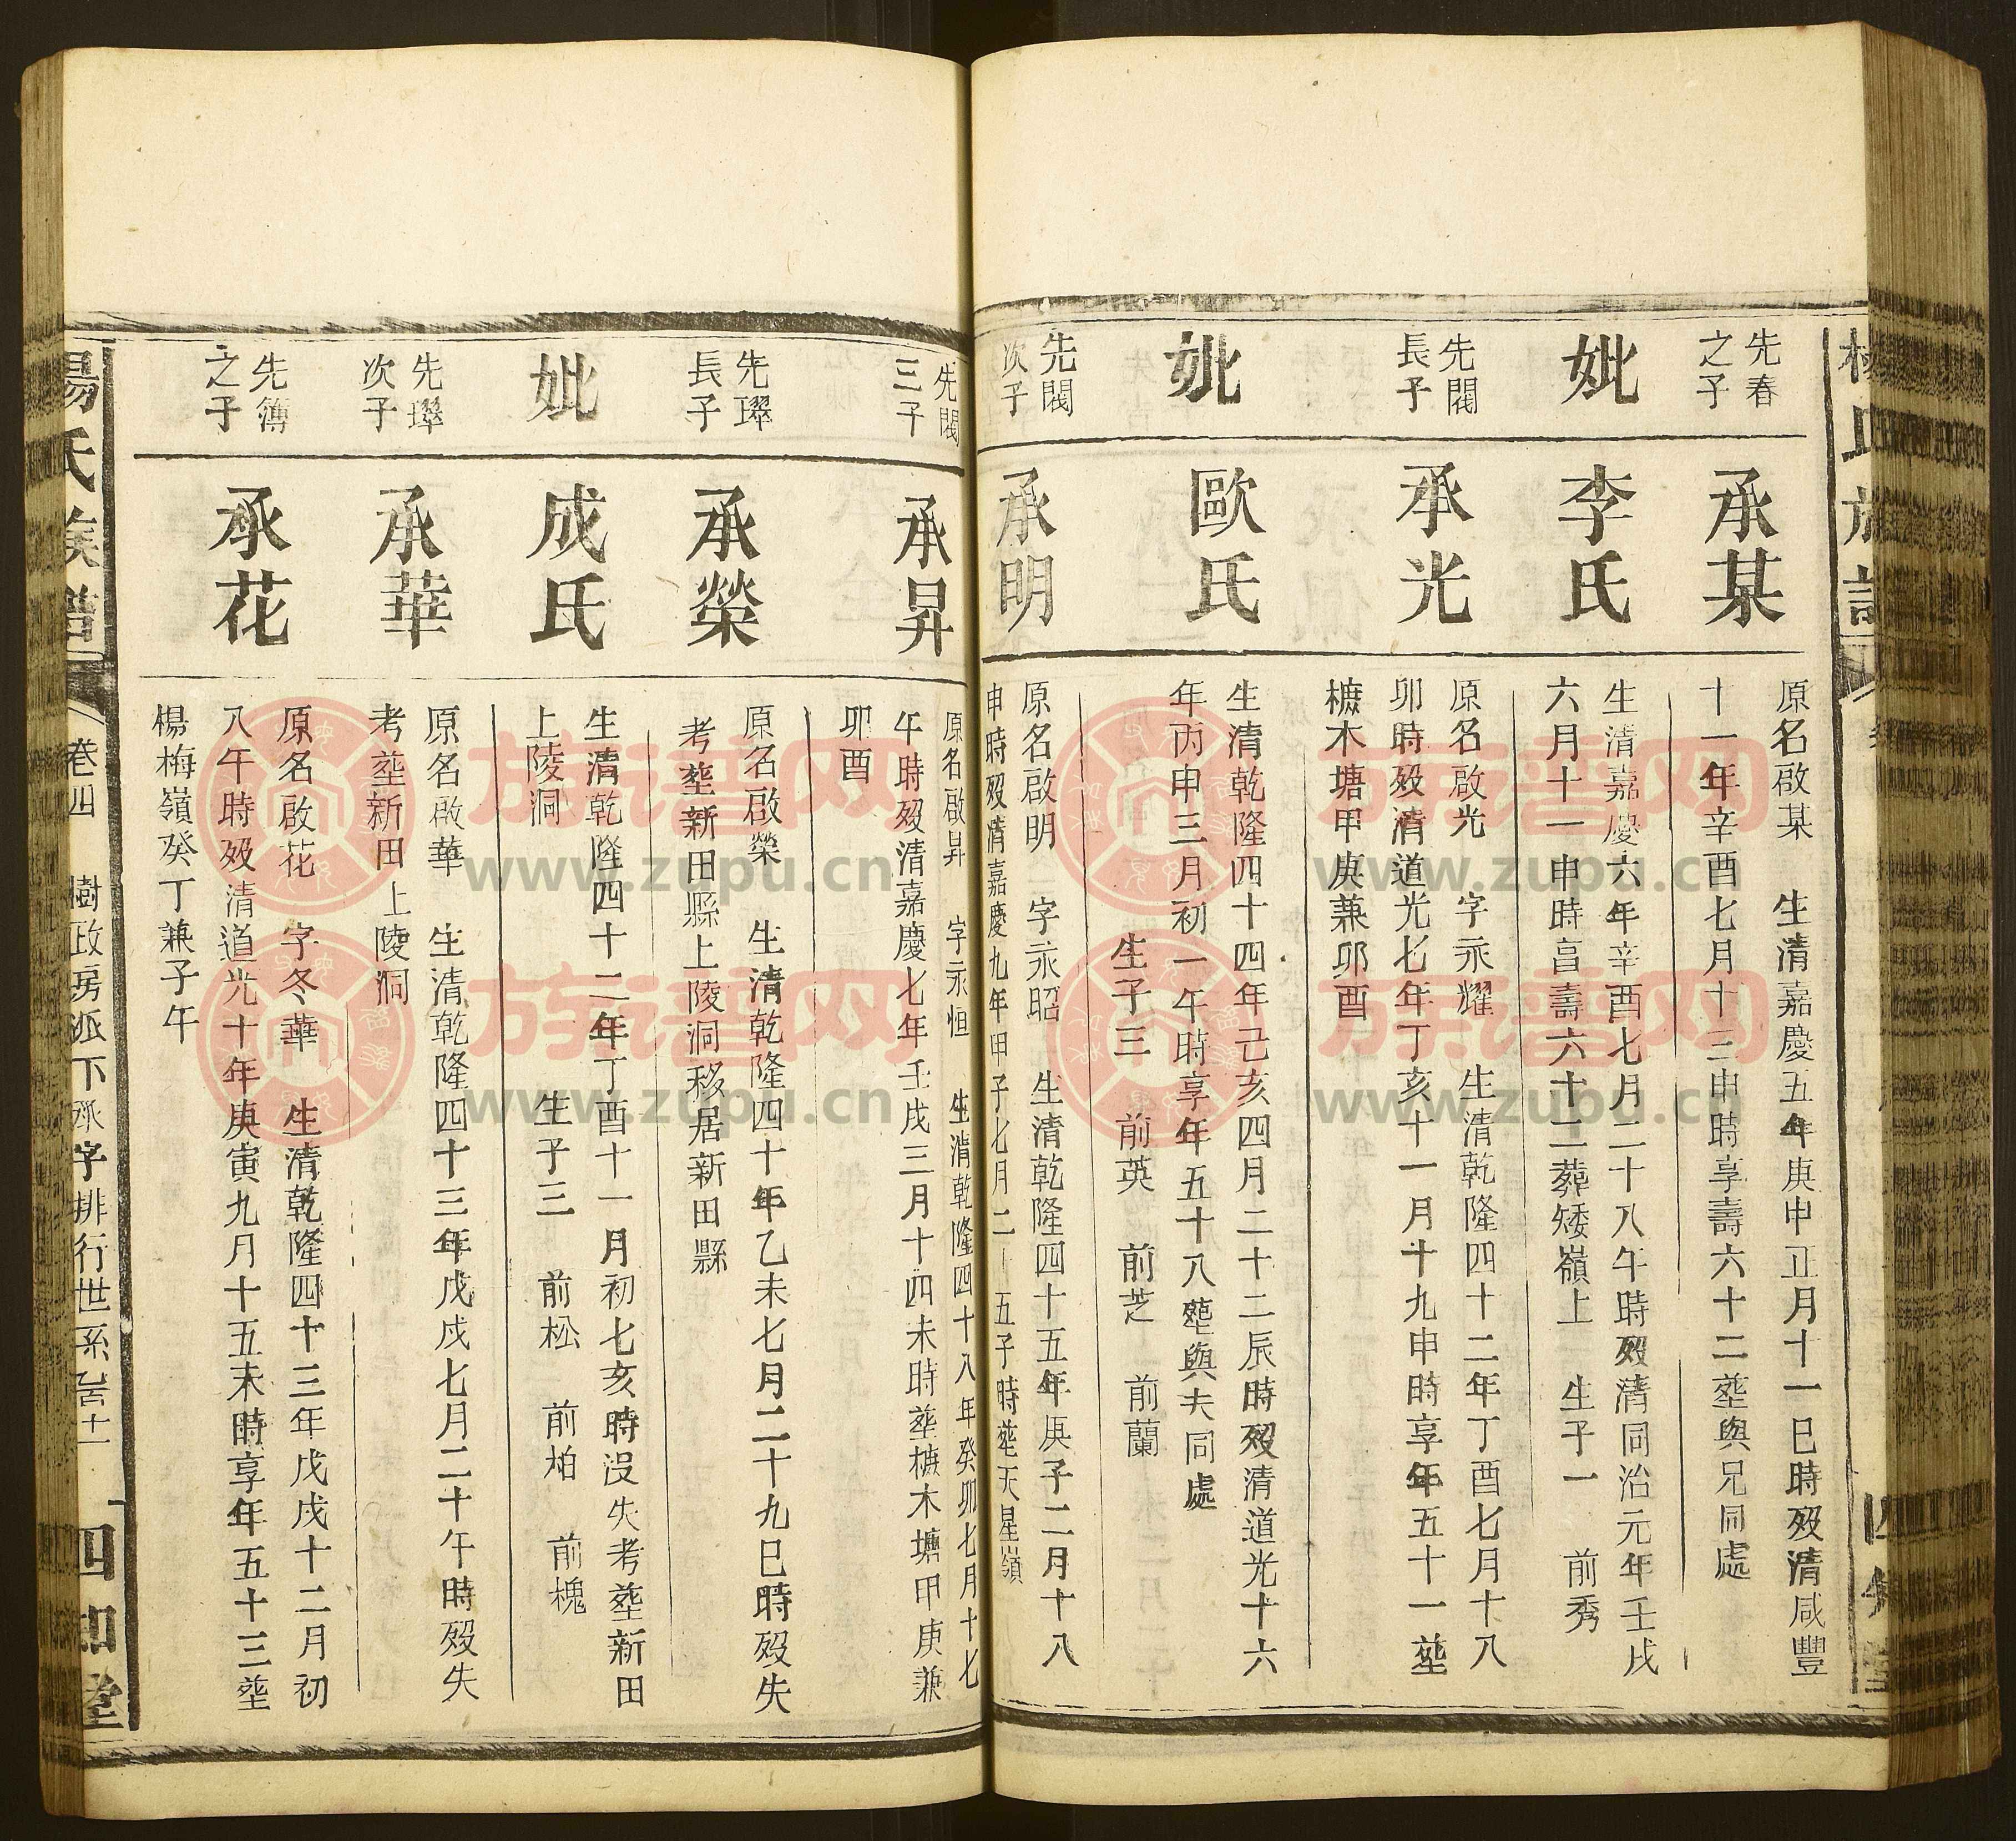 先春
之子
承某
原名啟某 生清嘉慶五年庚申正月十一巳時殁清咸豐
十一年辛酉七月十三申時享壽六十二塟與兄同處
妣
李氏
生清嘉慶六年辛酉七月二十八午時殁清同治元年壬戌
六月十一申時享壽六十二葬矮嶺上 生子一 前秀
先閥
長子
承光
原名啟光 字永耀 生清乾隆四十二年丁酉七月十八
卯時殁清道光七年丁亥十一月十九申時享年五十一塟
樜木塘甲庚兼卯酉
妣
歐氏
生清乾隆四十四年己亥四月二十二辰時殁清道光十六
年丙申三月初一午時享年五十八塟與夫同處
生子三 前英 前芝 前蘭
先閥
次子
承明
原名啟明 字永昭 生清乾隆四十五年庚子二月十八
申時殁清嘉慶九年甲子七月二十五子時塟天星嶺
先閥
三子
承昇
原名啟昇 字永恒 生清乾隆四十八年癸卯七月十七
午時殁清嘉慶七年壬戌三月十四未時塟樜木塘甲庚兼
卯酉
先璻
長子
承榮
原名啟榮 生清乾隆四十年乙未七月二十九巳時殁失
考塟新田縣上陵洞移居新田縣
妣
成氏
生清乾隆四十二年丁酉十一月初七亥時沒失考塟新田
上陵洞 生子三 前松 前柏 前槐
先璻
次子
承華
原名啟華 生清乾隆四十三年戊戌七月二十午時殁失
考塟新田上陵洞
先簿
之子
承花
原名啟花 字冬華 生清乾隆四十三年戊戌十二月初
八午時殁清道光十年庚寅九月十五未時享年五十三塟
楊梅嶺癸丁兼子午
楊氏族譜 卷四 樹政房派下承字排行世系 四知堂
族谱网
www.zupu.cn
族谱网
www.zupu.cn
族谱网
www.zupu.cn
族谱网
www.zupu.cn